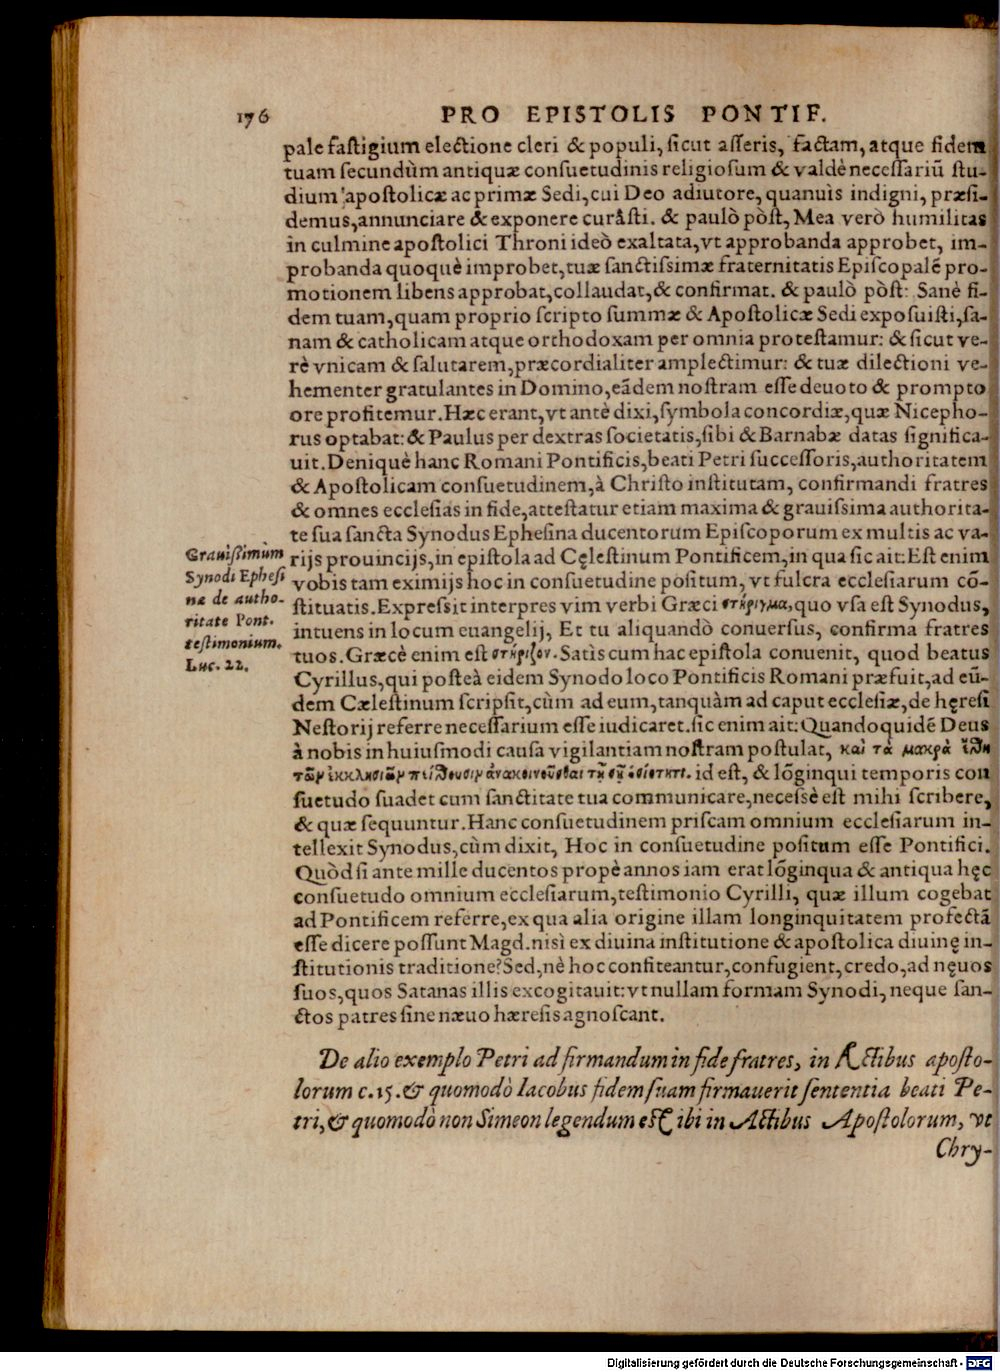 176 PRO EPISTOLIS PONTIF.
pale fastigium electione cleri & populi, sicut asseris, factam, atque fidem
tuam secundùm antiquæ consuetudinis religiosum & valdè necessariū stu-
dium apostolicæ ac primæ Sedi, cui Deo adiutore, quanuìs indigni, præsi-
demus, annunciare & exponere curâsti. & paulò pòst, Mea verò humilitas
in culmine apostolici Throni ideò exaltata, vt approbanda approbet, im-
probanda quoquè improbet, tuæ sanctissimæ fraternitatis Episcopalē pro-
motionem libens approbat, collaudat, & confirmat. & paulò pòst: Sanè fi-
dem tuam, quam proprio scripto summæ & Apostolicæ Sedi exposuisti, sa-
nam & catholicam atque orthodoxam per omnia protestamur: & sicut ve-
rè vnicam & salutarem, præcordialiter amplectimur: & tuæ dilectioni ve-
hementer gratulantes in Domino, eādem nostram esse deuoto & prompto
ore profitemur. Hæc erant, vt antè dixi, symbola concordiæ, quæ Nicepho-
rus optabat: & Paulus per dextras societatis, sibi & Barnabæ datas significa-
uit. Deniquè hanc Romani Pontificis, beati Petri successoris, authoritatem
& Apostolicam consuetudinem, à Christo institutam, confirmandi fratres
& omnes ecclesias in fide, attestatur etiam maxima & grauissima authorita-
te sua sancta Synodus Ephesina ducentorum Episcoporum ex multis ac va-
rijs prouincijs, in epistola ad Cęlestinum Pontificem, in qua sic ait: Est enim
vobis tam eximijs hoc in consuetudine positum, vt fulcra ecclesiarum cō-
stituatis. Expressit interpres vim verbi Græci στήριγμα, quo vsa est Synodus,
intuens in locum euangelij, Et tu aliquandò conuersus, confirma fratres
tuos. Græcè enim est στήριξον. Satìs cum hac epistola conuenit, quod beatus
Cyrillus, qui posteà eidem Synodo loco Pontificis Romani præfuit, ad eū-
dem Cælestinum scripsit, cùm ad eum, tanquàm ad caput ecclesiæ, de hęresi
Nestorij referre necessarium esse iudicaret. sic enim ait: Quandoquidē Deus
à nobis in huiusmodi causa vigilantiam nostram postulat, καὶ τὰ μακρὰ ἔθη
τῶν ἐκκλησιῶν πείθουσιν ἀνακοινοῦσθαι τῇ σῇ ὁσιότητι. id est, & lōginqui temporis con
suetudo suadet cum sanctitate tua communicare, necessè est mihi scribere,
& quæ sequuntur. Hanc consuetudinem priscam omnium ecclesiarum in-
tellexit Synodus, cùm dixit, Hoc in consuetudine positum esse Pontifici.
Quòd si ante mille ducentos propè annos iam erat lōginqua & antiqua hęc
consuetudo omnium ecclesiarum, testimonio Cyrilli, quæ illum cogebat
ad Pontificem referre, ex qua alia origine illam longinquitatem profectā
esse dicere possunt Magd. nisi ex diuina institutione & apostolica diuinę in-
stitutionis traditione? Sed, nè hoc confiteantur, confugient, credo, ad nęuos
suos, quos Satanas illis excogitauit: vt nullam formam Synodi, neque san-
ctos patres sine næuo hæresis agnoscant.
Grauissimum
Synodi Ephesi
næ de autho-
ritate Pont.
testimonium.
Luc. 22.
De alio exemplo Petri ad firmandum in fide fratres, in Actibus aposto-
lorum c.15. & quomodò Iacobus fidem suam firmauerit sententia beati Pe-
tri, & quomodò non Simeon legendum est ibi in Actibus Apostolorum, vt
Chry-
Digitalisierung gefördert durch die Deutsche Forschungsgemeinschaft - DFG